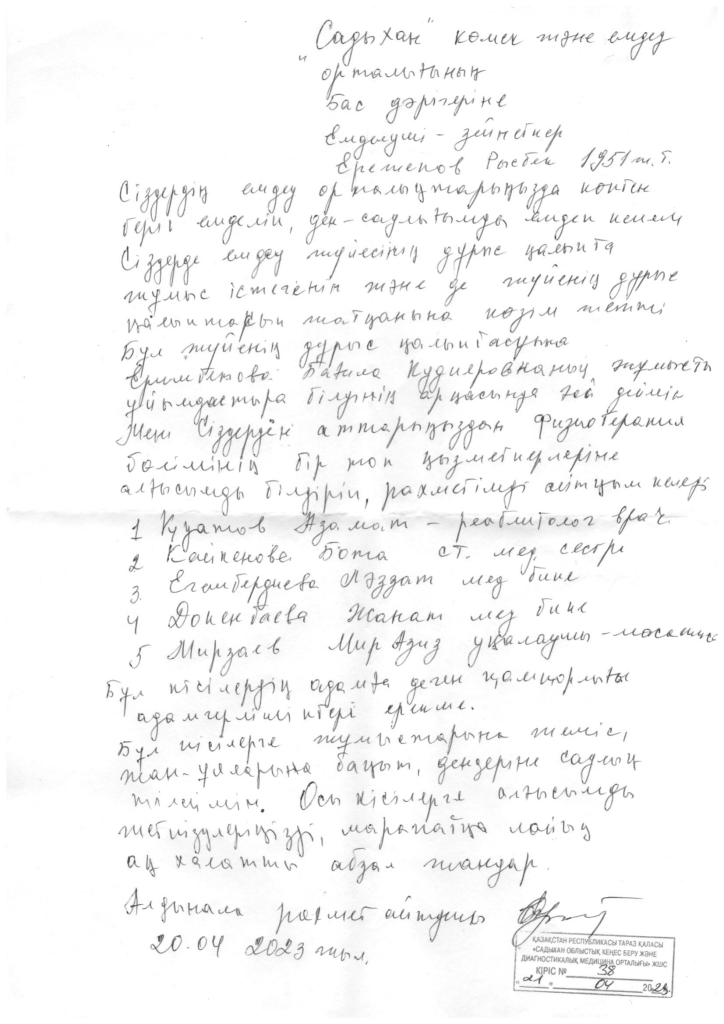 "Садыхан" көмек және емдеу
орталығының
Бас дәрігеріне
Емделуші - зейнеткер
Ережепов Рысбек 1951 ж.т.
Сіздердің емдеу орталықтарыңызда көптен
бері емделіп, ден-саулығымды емдеп келем
Сіздерде емдеу жүйесінің дұрыс қалыпта
жұмыс істегенін және де жүйенің дұрыс
қалыптасып жатқанына көзім жетті
Бұл жүйенің дұрыс қалыптасуына
Еримбетова Батила Кудияровнаның жұмысты
ұйымдастыра білуінің арқасында дей
Мен Сіздердің аттарыңыздан физиотерапия
бөлімінің бір топ қызметкерлеріне
алғысымды білдіріп, рахметімді айтқым келеді
1 Азамат - реаблитолог врач.
2 Кайпенова Бота ст. мед. сестра
3. Егамбердиева Ләззат мед бике
4 Допенбаева Жанат мед бике
5 Мирзаев МирАзиз уқалаушы-
Бұл кісілердің адамға деген қамқорлығы
адамгершіліктері ерекше.
Бұл кісілерге жұмыстарына жеміс,
жан-ұяларына бақыт, дендеріне саулық
тілеймін. Осы кісілерге алғысымды
жеткізулеріңізді, марапатқа лайық
ақ халатты абзал жандар.
Алдынала рахмет айтушы
20.04 2023 жыл.
ҚАЗАҚСТАН РЕСПУБЛИКАСЫ ТАРАЗ ҚАЛАСЫ
«САДЫХАН ОБЛЫСТЫҚ КЕҢЕС БЕРУ ЖӘНЕ
ДИАГНОСТИКАЛЫҚ МЕДИЦИНА ОРТАЛЫҒЫ» ЖШС
КІРІС № 38
"21" 04 2023.